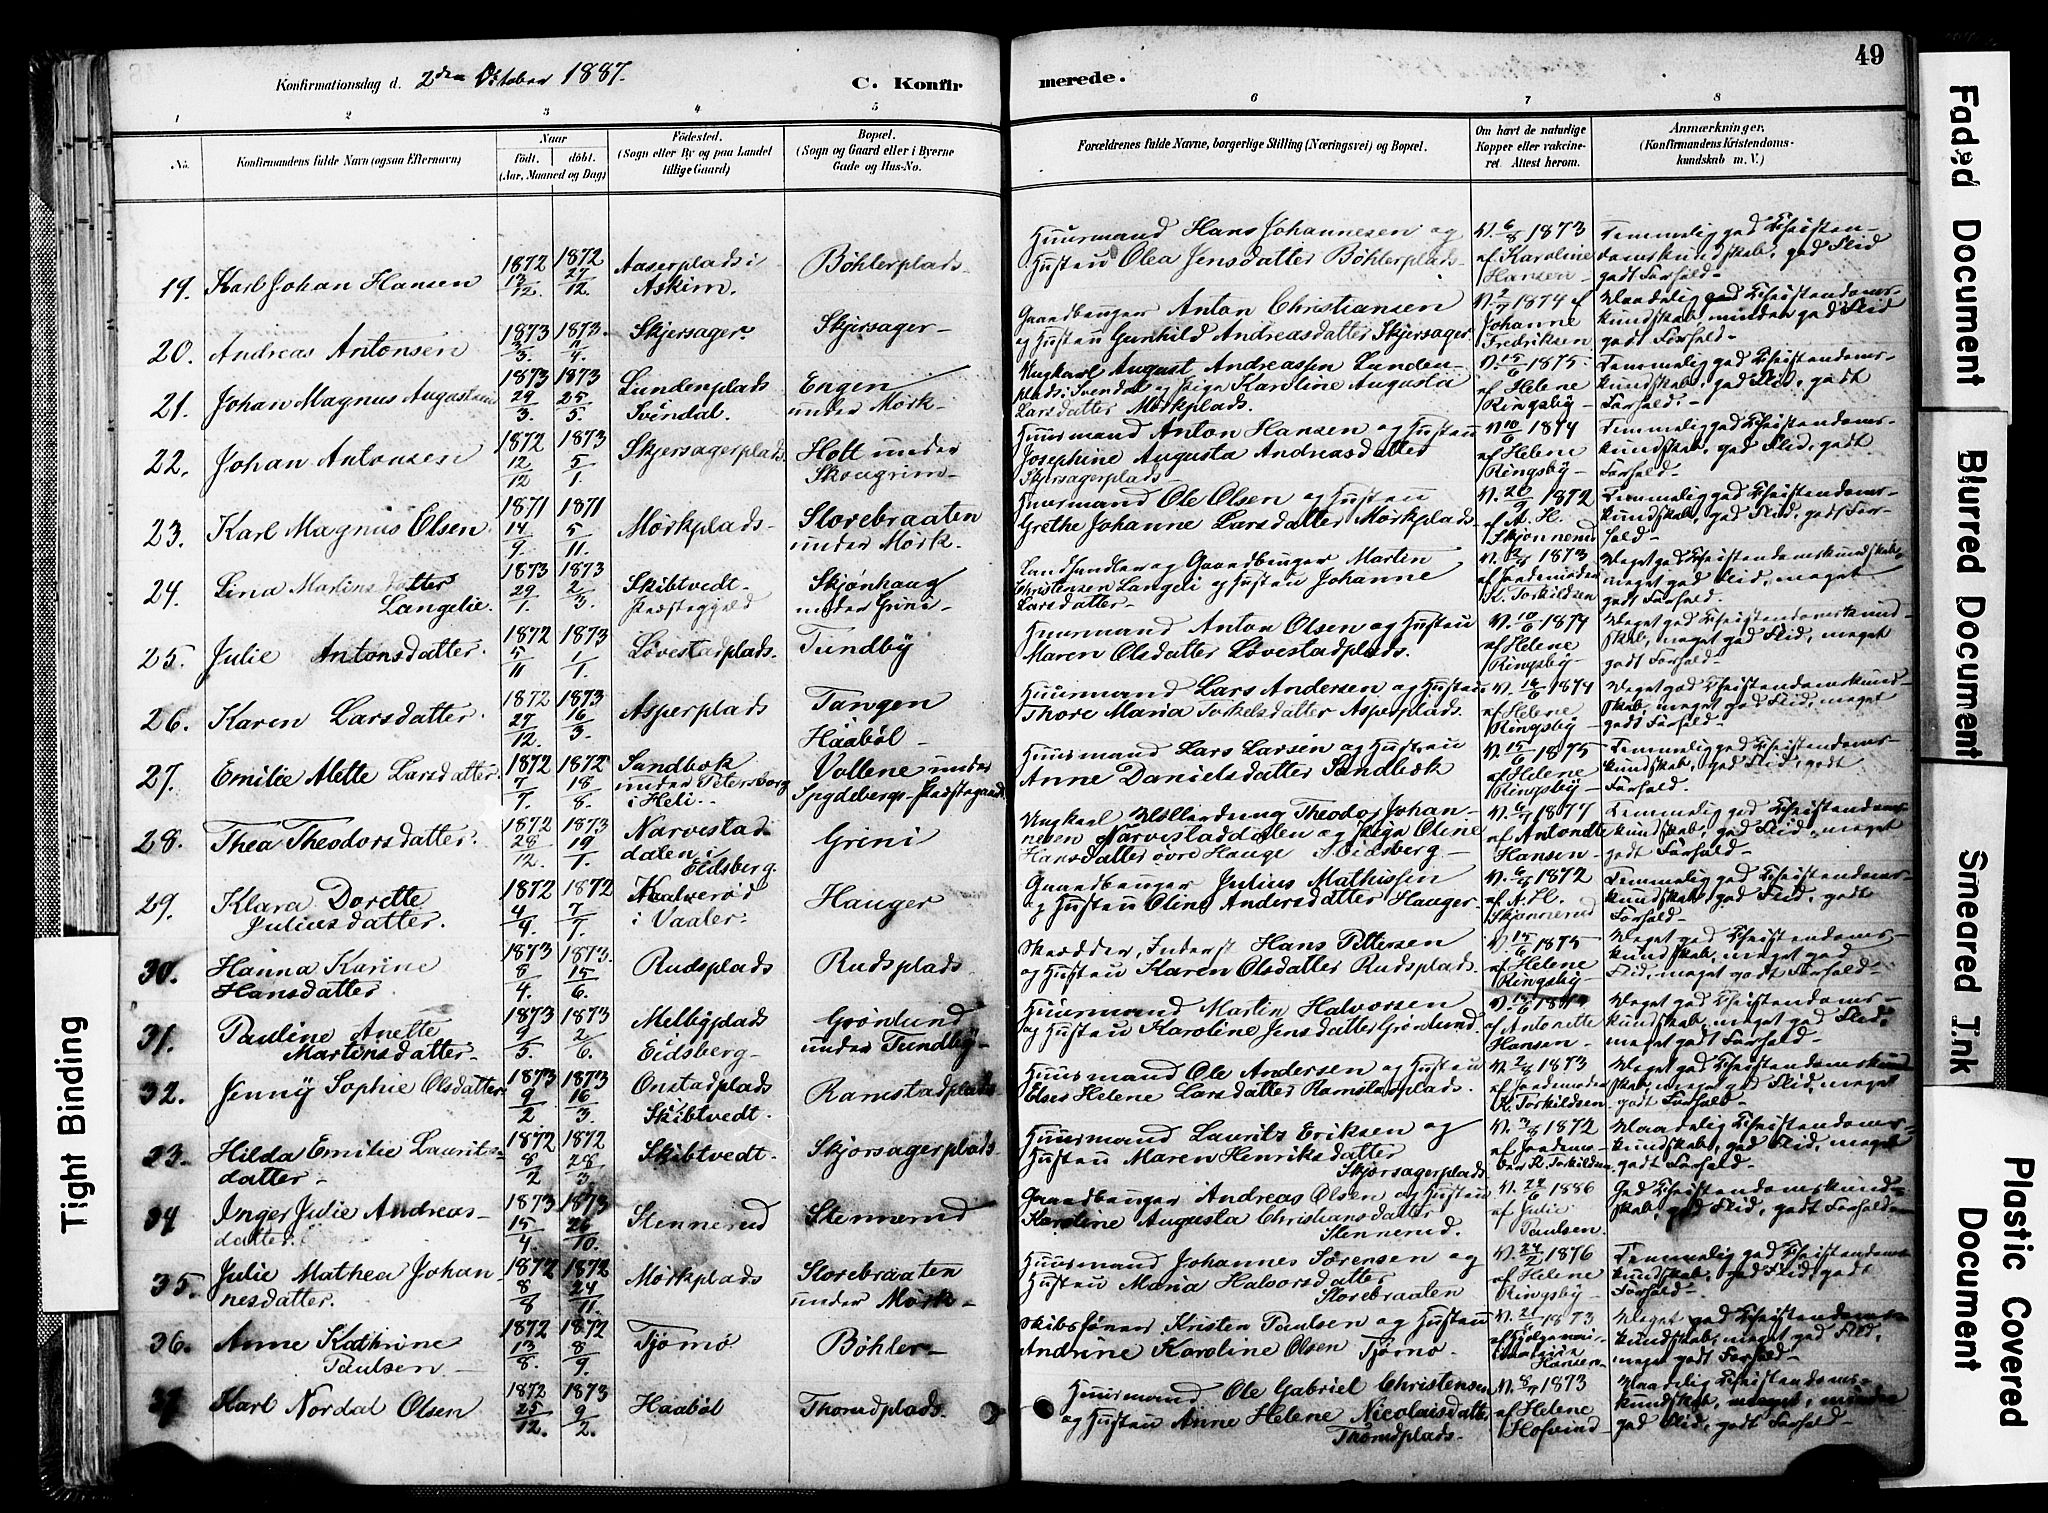 49
Konfirmationsdag d. 2den Oktober 1887.
C. Konfirmerede.
1 2 3 4 5 6 7 8
No.
Konfirmandens fulde Navn (ogsaa Efternavn)
Naar
født. døbt.
(Aar, Maaned og Dag)
Fødested.
(Sogn eller By og paa Landet
tillige Gaard)
Bopæl.
(Sogn og Gaard eller i Byerne
Gade og Hus-No.
Forældrenes fulde Navne, borgerlige Stilling (Næringsvei) og Bopæl.
Om havt de naturlige
Kopper eller vakcine-
ret Attest herom.
Anmærkninger.
(Konfirmandens Kristendoms-
kundskab m. V.)
19. Karl Johan Hansen 1872 12/12. 1872 27/12. Aaserplads i Askim. Bøhlerplads-
Huusmand Hans Johannesen og
Hustru Olea Jensdatter Bøhlerplads-
V. 6/8 1873 af Karoline Hansen-
Temmelig god Christen-
domskundskab, god Flid
godt Forhold-
20. Andreas Antonsen 1873 1873. Skjersager. Skjersager-
Gaardbruger Anton Christiansen
og Hustru Gunhild Andreasdatter Skjersager
1874 af Johanne Fredriksen
Maadelig god Christendoms-
kundskab minder god Flid
godt Forhold-
21. Johan Magnus Augustsen 1873 29/3. 1873 25/5. Lundenplads Svendal. Engen under Mørk-
Ungkarl August Andreassen Lunden-
plads i Svendal og Pige Karoline Augusta
Larsdatter Mørkplads.
V. 15/6 1875 af Helene Ringsby-
Temmelig god Christendoms-
kundskab, god Flid, godt
Forhold.-
22. Johan Antonsen 1872 12/12 1873 5/1. Skjersagerplads. Holt under Skougrim-
Huusmand Anton Hansen og Hustru
Josephine Augusta Andreasdatter
Skjersagerplads-
V. 10/6 1874 af Helene Ringsby-
Temmelig god Christendoms-
kundskab, god Flid, godt
Forhold-
23. Karl Magnus Olsen 1871 14/9. 1871 5/11. Mørkplads- Storebraaten under Mørk.
Huusmand Ole Olsen og Hustru
Grethe Johanne Larsdatter Mørkplads.
V. 20/9 1872 af A. H. Skjønnerud
Temmelig god Christendoms-
kundskab, god Flid, godt For-
hold-
24. Lina Martinsdatter Langelie. 1873 29/1. 1873 2/3. Skibtvedt Præstegjæld Skjønhaug under Grini-
Landhandler og Gaardbruger Martin
Christensen Langeli og Hustru Johanne
Larsdatter-
1873 af Jordemoder K. Torkildsen
Meget god Christendomskundskab,
meget god Flid, meget
godt Forhold.
25. Julie Antonsdatter. 1872 5/11 1873 1/1. Løvestadplads. Tundby
Huusmand Anton Olsen og Hustru
Maren Olsdatter Løvestadplads.
V. 10/6 1874 af Helene Ringsby-
Meget god Christendomskund-
skab, meget god Flid, meget
godt Forhold-
26. Karen Larsdatter. 1872 27/12. 1873 16/3. Asperplads Tangen Haabøl-
Huusmand Lars Andersen og Hustru
Thore Maria Torkelsdatter Asperplads.
1874 af Helene Ringsby-
Meget god Christendomskund-
skab, meget god Flid, meget
godt Forhold-
27. Emilie Alette Larsdatter. 1872 7/7. 1872 18/8. Sandbæk under Petersborg i Heli.- Vollene under Spydebergs Præstegaard
Huusmand Lars Larsen og Hustru
Anne Danielsdatter Sandbæk
V. 15/6 1875 af Helene Ringsby-
Temmelig god Christendoms-
kundskab, god Flid, godt
Forhold.
28. Thea Theodorsdatter. 1872 28/12. 1873 19/1. Narvestad- dalen i Eidsberg. Grini
Ungkarl Møllerdreng Theodor Johan-
nesen Narvestaddalen og Pige Oline
Hansdatter øvre Hauge i Eidsberg-
1877 af Antonette Hansen-
Temmelig god Christendoms-
kundskab, god Flid, meget
godt Forhold-
29. Klara Dorette Juliusdatter. 1872 4/4. 1872 7/7. Kaalverød i Vaaler. Hauger
Gaardbruger Julius Mathissen
og Hustru Oline Andersdatter Hauger-
1872 af A. H. Skjønnerud
Temmelig god Christendoms-
kundskab, god Flid, godt
Forhold-
30. Hanna Karine Hansdatter. 1873 8/4. 1873. 15/6. Rudsplads Rudsplads.
Skrædder, Inderst Hans Pettersen
og Hustru Karen Olsdatter Rudsplads.
V. 15/6 1875 af Helene Ringsby-
Meget god Christendoms-
kundskab, meget god
Flid, meget godt Forhold-
31. Pauline Anette Martinsdatter- 1873 9/5. 1873 2/6. Melbyplads Eidsberg- Grønlund under Tundby-
Huusmand Martin Halvorsen
og Hustru Karoline Jensdatter Grønlund.
af Antonette Hansen-
Meget god Christendoms-
kundskab, meget god Flid,
meget godt Forhold-
32. Jenny Sophie Olsdatter 1873 9/2 1873 16/3. Onstadplads Skibtvedt. Ramstadplads
Huusmand Ole Andersen og Hustru
Elses Helene Larsdatter Ramstadplads.
V. 2/8 1873 af Jordemoder K. Torkildsen.
Meget god Christendomskund
skab, meget god Flid, meget
godt Forhold-
33. Hilda Emilie Laurits- datter- 1872 8/2 1872 28/3. Skibtvedt. Skjørsagerplads.
Huusmand Laurits Eriksen og
Hustru Maren Henriksdatter
Skjørsagerplads
1872 af Jordemo- der K. Torkildsen
Maadelig Christendoms-
kundskab, god Flid, meget
godt Forhold-
34 Inger Julie Andreas- datter. 1873 15/4. 1873 26/10. Stennerud Stennerud
Gaardbruger Andreas Olsen og Hustru
Karoline Augusta Christiansdatter
Stennerud.
V. 22/6 1886 af Julie Paulsen.
God Christendomskund-
skab, god Flid, godt Forhold
35. Julie Mathea Johan nesdatter. 1872 8/8 1872 24/11. Mørkplads Storebraaten under Mørk-
Huusmand Johannes Sørensen og
Hustru Maria Halvorsdatter
Storebraaten
V. 24/2 1876 af Helene Ringsby-
Temmelig god Christendoms-
kundskab, god Flid, godt
Forhold.
36. Anne Kathrine Paulsen- 1872 13/8. 1872 8/9. Tjømø Bøhler-
Skibsfører Kristen Paulsen og Hustru
Andrine Karoline Olsen Tjømø-
1873 Hansen-
Meget god Christendoms
kundskab, meget god Flid,
meget godt Forhold-
37 Karl Nordal Olsen 1872 25/12. 1873 9/2. Haabøl Thorudplads.
Huusmand Ole Gabriel Christensen
og Hustru Anne Helene Nicolaisdatter
Thorudplads-
V. 8/7 1873 af Helene Hofvind
Maadelig Christendoms-
kundskab, meget, mindre
god Flid, godt Forhold-
Tight Binding
Faded Document
Blurred Document
Smeared Ink
Plastic Covered
Document